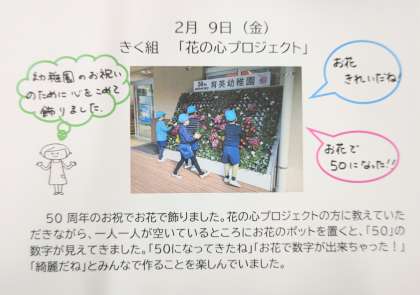 2月 9日（金）
きく組 「花の心プロジェクト」
幼稚園のお祝い
のために心をこめて
飾りました.
お花
きれいだね!
育英幼稚園
お花で
50になった!!
50 周年のお祝でお花で飾りました。花の心プロジェクトの方に教えていた
だきながら、一人一人が空いているところにお花のポットを置くと、「50」の
数字が見えてきました。「50になってきたね」「お花で数字が出来ちゃった！」
「綺麗だね」とみんなで作ることを楽しんでいました。